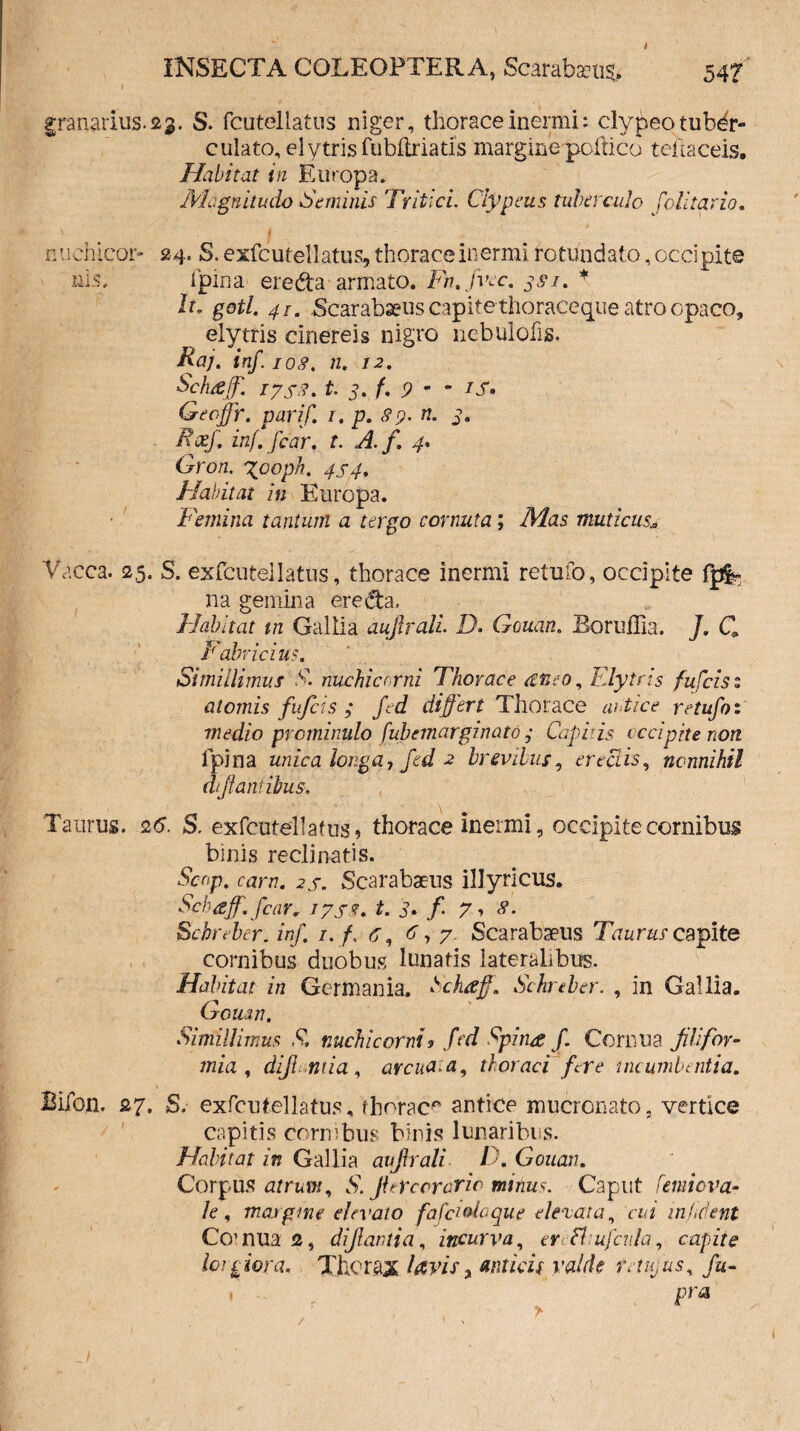 INSECTA COLEOPTERA, Scarabæus. 547
granarius. 23. S. ſcutellatus niger, thorace inermi: clypeo tuber-
culato, elytris ſubſtriatis margine poſtico teſtaceis.
Habitat in Europa.
Magnitudo Seminis Tritici. Clypeus tuberculo ſolitario.
nuchicor- 24. S. exſcutellatus, thorace inermi rotundato, occipite
nis. ſpina erecta armato. Fn. ſvec. 381. *
It. gotl. 41. Scarabæus capite thoraceque atro opaco,
elytris cinereis nigro nebuloſis.
Raj. inſ. 108. n. 12.
Schæff. 1758. t. 3. f. 9 - - 15.
Geoffr. pariſ. 1. p. 89. n. 3.
Rœſ. inſ. ſcar. t. A. f. 4.
Gron. zooph. 454.
Habitat in Europa.
Femina tantum a tergo cornuta; Mas muticus.
Vacca. 25. S. exſcutellatus, thorace inermi retuſo, occipite ſpi-
na gemina erecta.
Habitat in Gallia auſtrali. D. Gouan. Boruſſia. J. C.
Fabricius.
Simillimus S. nuchicorni Thorace æneo, Elytris fuſcis:
atomis fuſcis; ſed differt Thorace antice retuſo:
medio prominulo ſubemarginato; Capitis occipite non
ſpina unica longa, ſed 2 brevibus, erectis, nonnihil
diſtantibus.
Taurus. 26. S. exſcutellatus, thorace inermi, occipite cornibus
binis reclinatis.
Scop. carn. 25. Scarabæus illyricus.
Schæff. ſcar. 1758. t. 3. f. 7, 8.
Schreber. inſ. 1. f. 6, 6, 7. Scarabæus Taurus capite
cornibus duobus lunatis lateralibus.
Habitat in Germania. Schæff. Schreber. , in Gallia.
Gouan.
Simillimus S. nuchicorni, ſed Spinæ ſ. Cornua filifor-
mia, diſtantia, arcuata, thoraci fere incumbentia.
Biſon. 27. S. exſcutellatus, thorace antice mucronato, vertice
capitis cornibus binis lunaribus.
Habitat in Gallia auſtrali. D. Gouan.
Corpus atrum, S. ſtercorario minus. Caput ſemiova-
le, margine elevato faſciolaque elevata, cui inſident
Cornua 2, diſtantia, incurva, erectiuſcula, capite
longiora. Thorax lævis, anticis valde retuſus, ſu-
pra